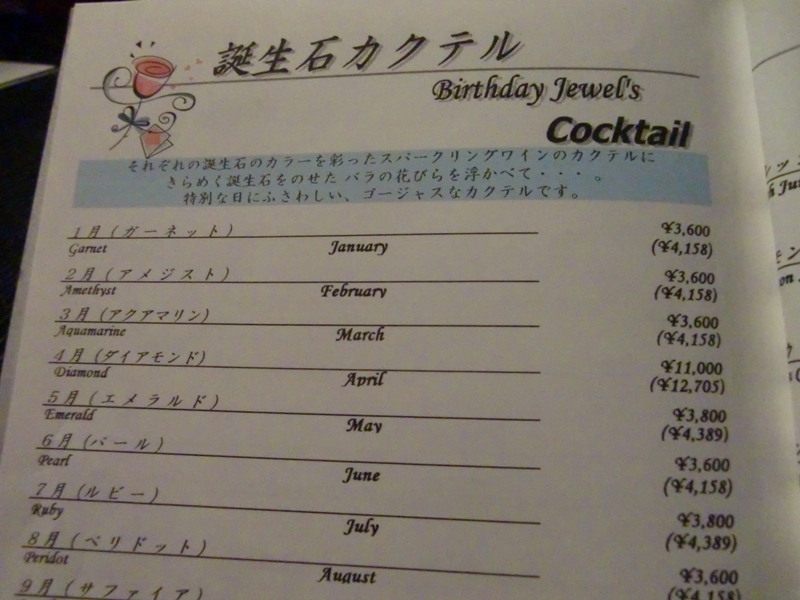 誕生石カクテル
Birthday Jewel's
Cocktail
それぞれの誕生石のカラーを彩ったスパークリングワインのカクテルに
きらめく誕生石をのせた バラの花びらを浮かべて・・・。
特別な日にふさわしい、ゴージャスなカクテルです。
1月(ガーネット) ¥3,600
Garnet January (¥4,158)
2月(アメジスト) ¥3,600
Amethyst February (¥4,158)
3月(アクアマリン) ¥3,600
Aquamarine March (¥4,158)
4月(ダイアモンド) ¥11,000
Diamond April (¥12,705)
5月(エメラルド) ¥3,800
Emerald May (¥4,389)
6月(パール) ¥3,600
Pearl June (¥4,158)
7月(ルビー) ¥3,800
Ruby July (¥4,389)
8月(ペリドット) ¥3,600
Peridot August (¥4,158
9月(サファイア)